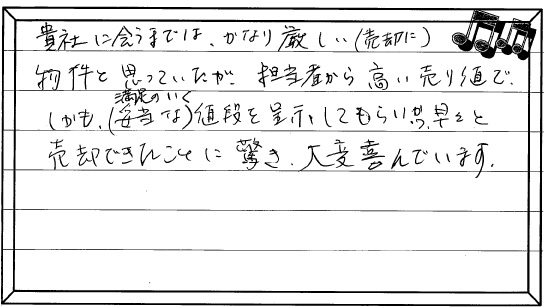 貴社に会うまでは、かなり厳しい(売却に)
物件と思っていたが、担当者から高い売り値で、
満足のいく
しかも、(妥当な)値段を呈示してもらい、早々と
売却できたことに驚き、大変喜んでいます。